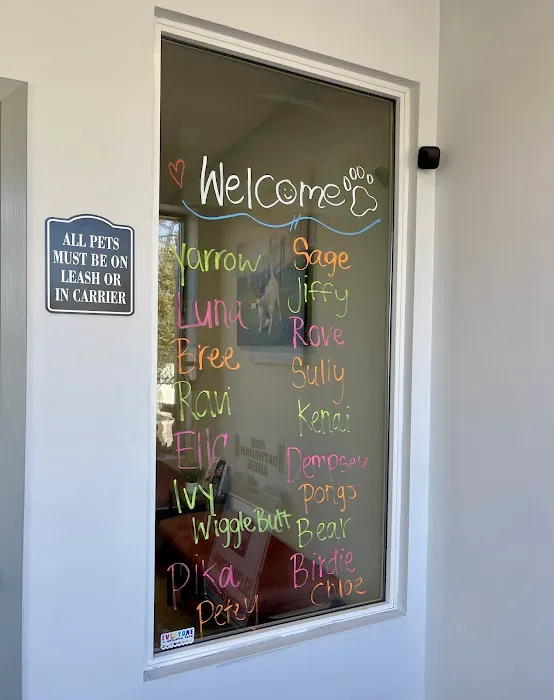 ALL PETS
MUST BE ON
LEASH OR
IN CARRIER
Welcome
Yarrow
Luna
Bree
Ravi
Ellc
Ivy
WiggleButt
Pika
Petey
Sage
Jiffy
Rove
Sully
Kenai
Dempsey
Pongo
Bear
Birdie
Chloe
EVERYONE